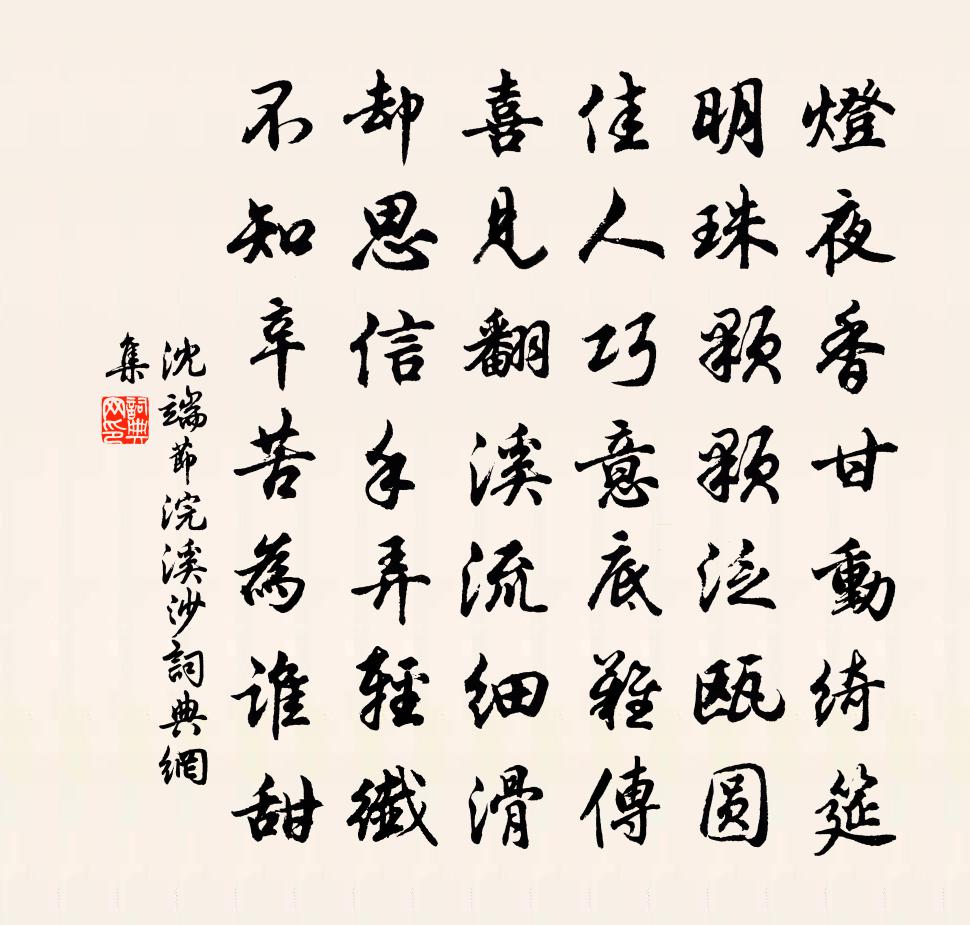 燈夜香甘動綺筵
明珠顆顆泛瓯圆
佳人巧意底難傳
喜見翻溪流細滑
却思信手弄輕纖
不知辛苦為誰甜
沈端節浣溪沙詞典網
集
詞典網印